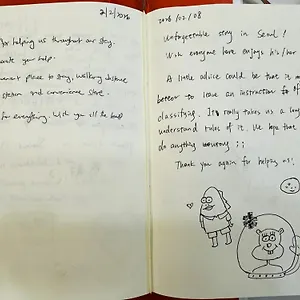 2/2/2026
for helping us throughout our stay.
your help.
place to stay, walking distance
station and convenience store.
for everything. Wish you all the best
2026/02/08
Unforgettable stay in Seoul!
Wish everyone here enjoys his/her
A little advice could be that it
better to leave an instruction for
classifying. It really takes us a long
understand rules of it. We hope that
do anything wrong ; ;
Thank you again for helping us!